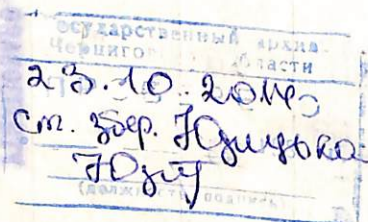 Государственный архив
Черниговской области
23.10.2014
ст. збер. Юдицька
(должность, подпись)